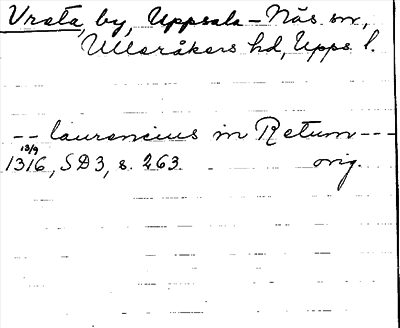 Vreta, by, Uppsala-Näs sn,
Ulleråkers hd, Upps. l.
-- laurencius in Retum ---
13/9
1316, SD3, s. 263. orig.